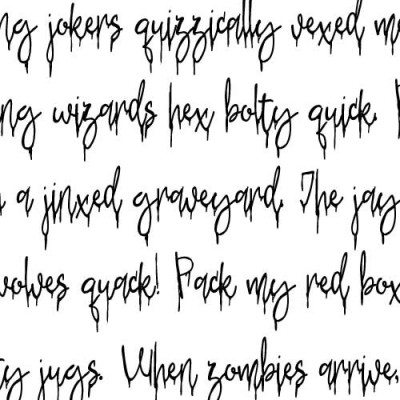 ng jokers quizzically vexed m
ng wizards hex bolty quick.
a jinxed graveyard. The jay
wolves quack! Pack my red box
ty jugs. When zombies arrive,